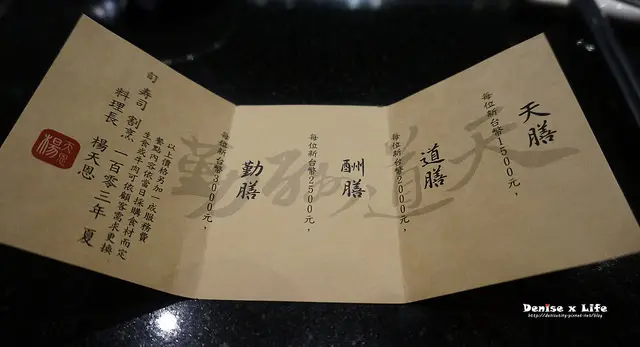 天道酬勤
天膳
每位新台幣1500元，
道膳
每位新台幣2000元，
酬膳
每位新台幣2500元，
勤膳
每位新台幣3000元，
以上價格另加一成服務費
餐點內容依當日採購食材而定
生食或牛肉可依顧客需求更換
司 寿司 割烹 一百零三年 夏
料理長 楊天恩
天恩
楊
Denise x Life